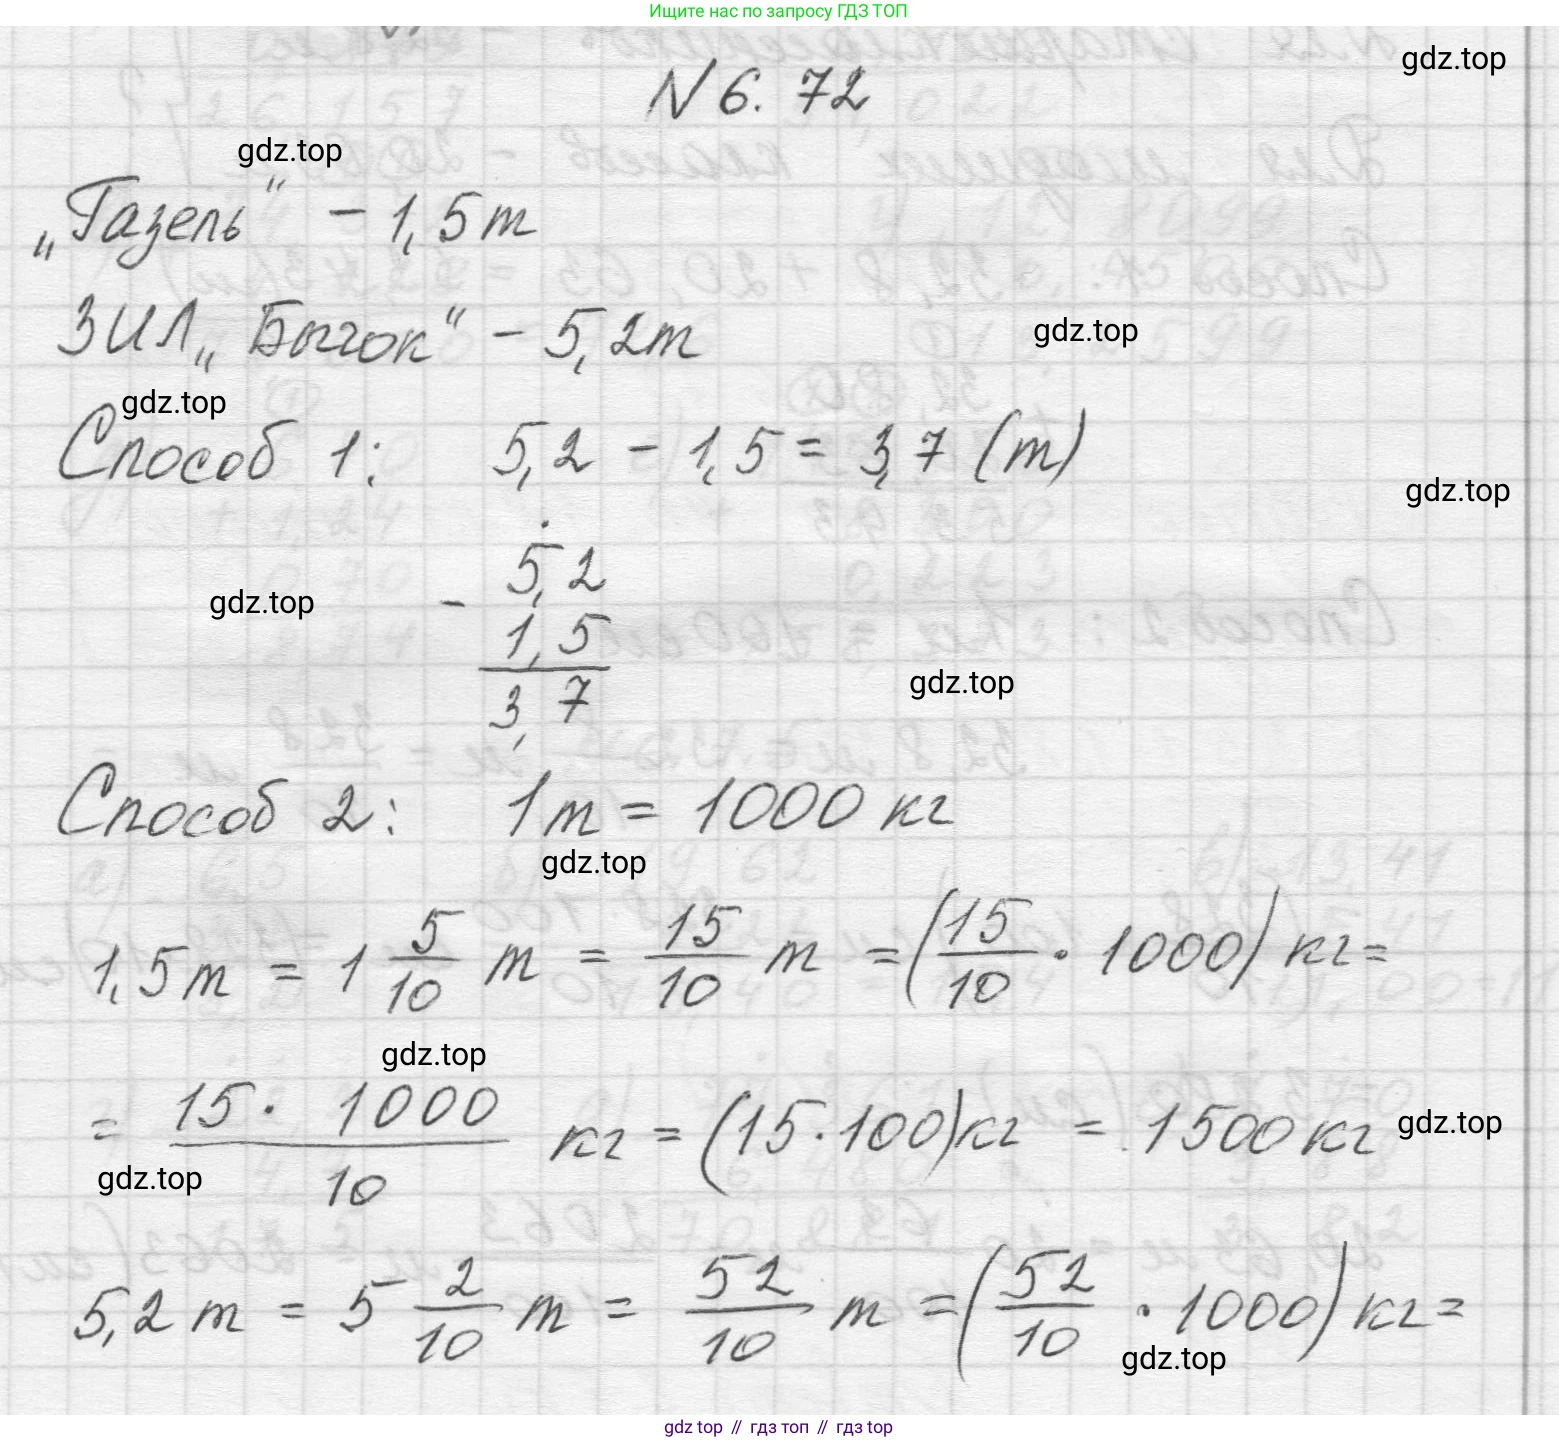 Ищите нас по запросу ГДЗ ТОП
gdz.top
N 6. 72
gdz.top
„Газель“ - 1,5 т
ЗИЛ „Бычок“ - 5,2 т
gdz.top
gdz.top
Способ 1: 5,2 - 1,5 = 3,7 (т)
gdz.top
- 5,2
gdz.top
1,5
3,7
gdz.top
Способ 2: 1 т = 1000 кг
gdz.top
1,5 т = 1 5/10 т = 15/10 т = (15/10 · 1000) кг =
gdz.top
= 15 · 1000/10 кг = (15 · 100) кг = 1500 кг
gdz.top
gdz.top
5,2 т = 5 2/10 т = 52/10 т = (52/10 · 1000) кг =
gdz.top
gdz top // гдз топ // гдз top